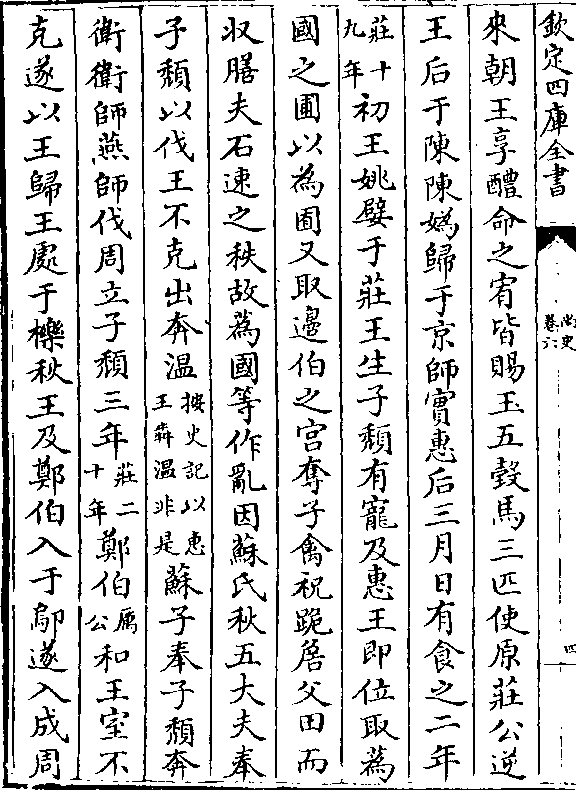 欽定四庫全書
尚史
卷六
四
來朝王享醴命之宥皆賜玉五瑴馬三匹使原莊公逆
王后于陳陳媯歸于京師實惠后三月日有食之二年
莊十
九年
初王姚嬖于莊王生子頹有寵及惠王即位取蔿
國之圃以為囿又取邊伯之宫奪子禽祝跪詹父田而
収膳夫石速之秩故蔿國等作亂因蘇氏秋五大夫奉
子頹以伐王不克出奔温
按史記以惠
王犇温非是
蘇子奉子頹奔
衛衛師燕師伐周立子頹三年
莊二
十年
鄭伯
厲
公
和王室不
克遂以王歸王處于櫟秋王及鄭伯入于鄔遂入成周